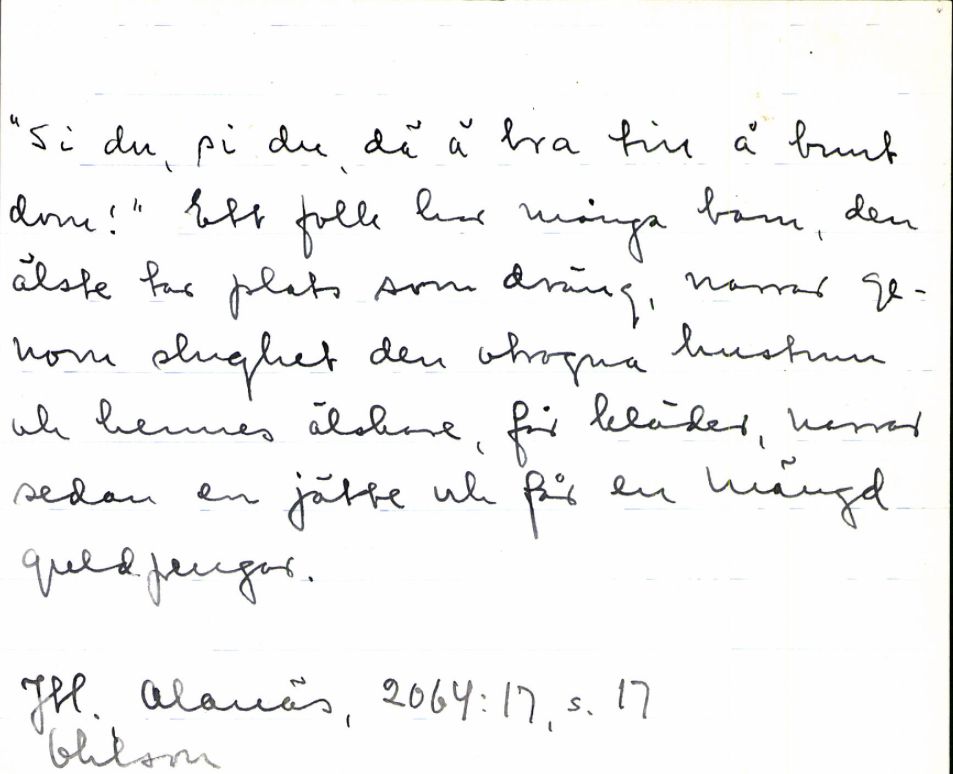 "Si du, pi du, dä ä bra tin å bunt
dom!" Ett folk har många barn, den
älste tar plats som dräng, narrar ge-
nom slughet den otrogna hustrun
och hennes älskare, får kläder, narrar
sedan en jätte och får en mängd
guldpengar.
Jtl. Alanäs, 2064:17, s. 17
Ohlson